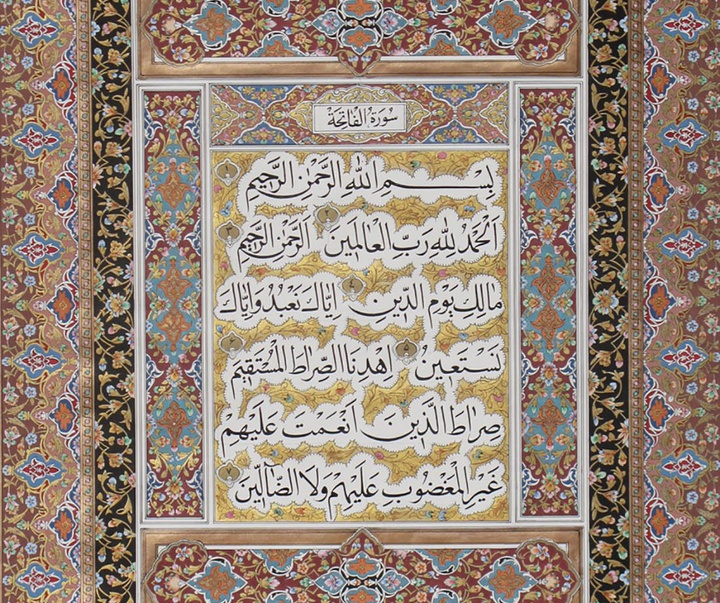 سورة الفاتحة
بِسْمِ اللّٰهِ الرَّحْمٰنِ الرَّحِيمِ ١
اَلْحَمْدُ لِلّٰهِ رَبِّ الْعَالَمِينَ ٢ اَلرَّحْمٰنِ الرَّحِيمِ ٣
مَالِكِ يَوْمِ الدِّينِ ٤ اِيَّاكَ نَعْبُدُ وَاِيَّاكَ
نَسْتَعِينُ ٥ اِهْدِنَا الصِّرَاطَ الْمُسْتَقِيمَ ٦
صِرَاطَ الَّذِينَ اَنْعَمْتَ عَلَيْهِمْ
غَيْرِ الْمَغْضُوبِ عَلَيْهِمْ وَلَا الضَّالِّينَ ٧